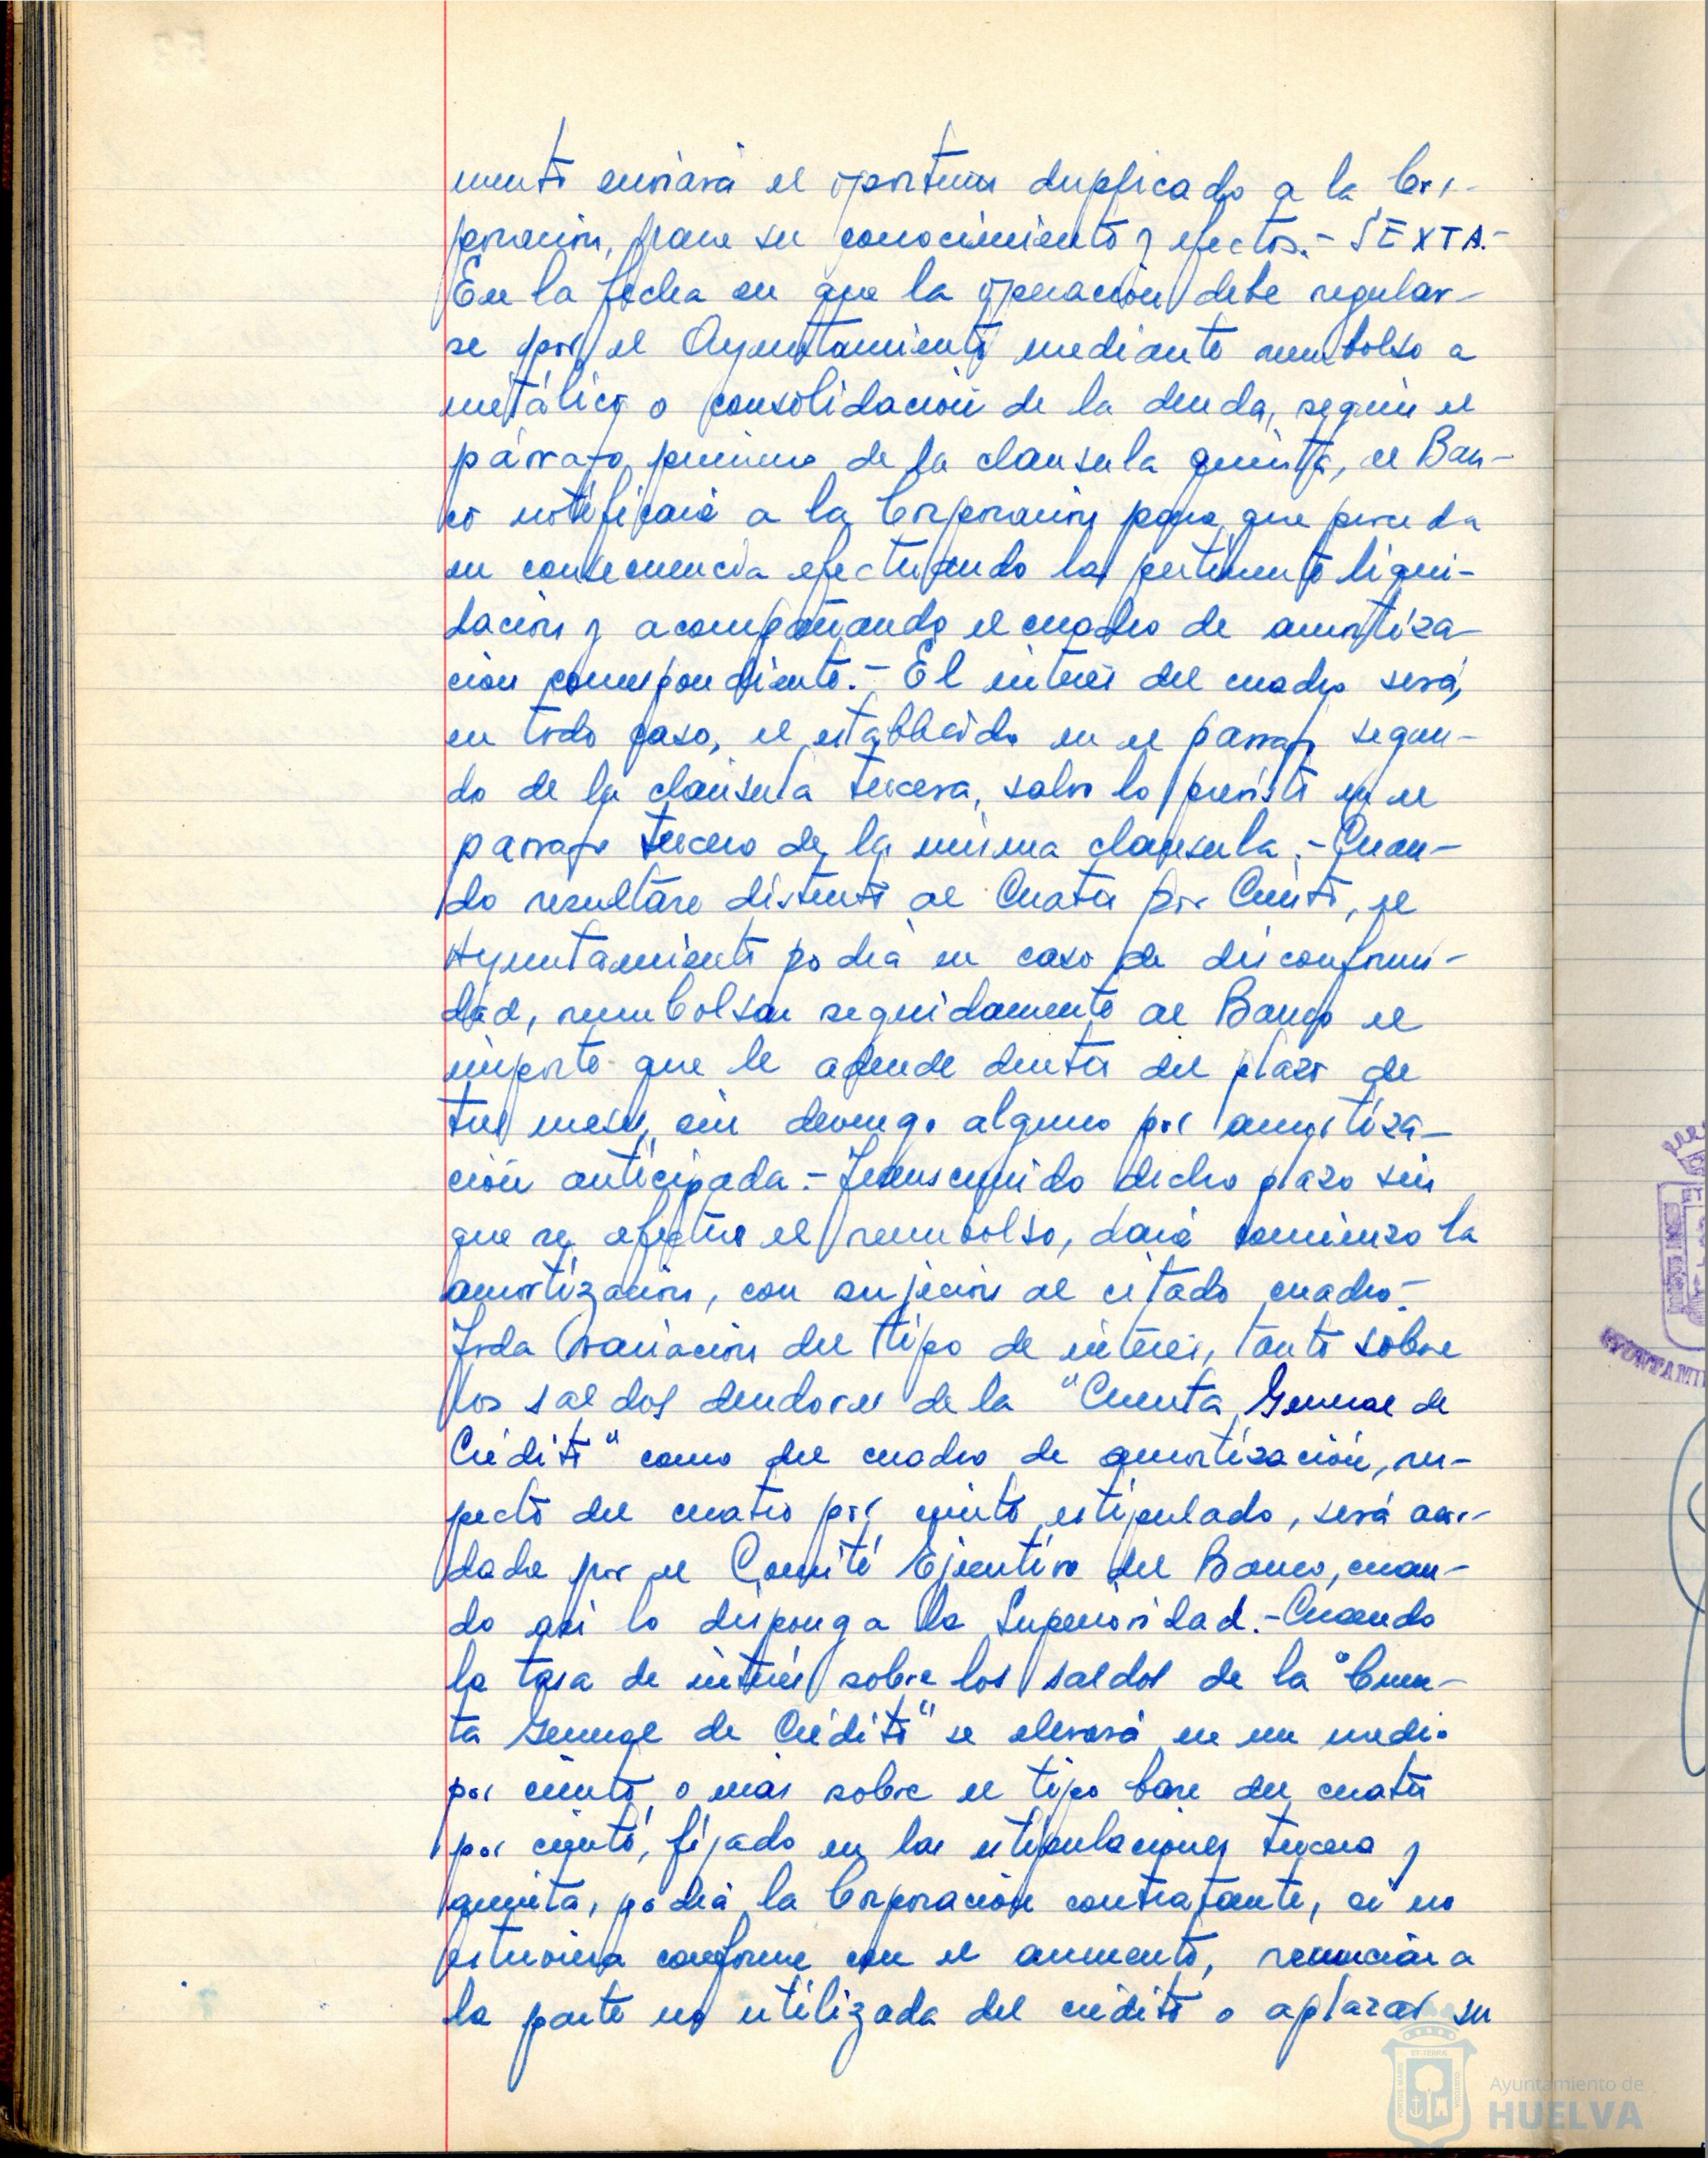 mente enviará el oportuno duplicado a la Cor-
poración, para su conocimiento y efectos.- SEXTA.-
En la fecha en que la operación debe regular-
se por el Ayuntamiento mediante reembolso a
metálico o consolidación de la deuda, según el
párrafo primero de la clausula quinta, el Ban-
co notificará a la Corporación para que proceda
en consecuencia efectuando la pertinente liqui-
dación y acompañando el cuadro de amortiza-
ción correspondiente.- El interés del cuadro será,
en todo caso, el establecido en el parrafo segun-
do de la clausula tercera, salvo lo previsto en el
parrafo tercero de la misma clausula.- Cuan-
do resultare distinto al Cuatro por Ciento, el
Ayuntamiento podrá en caso de disconformi-
dad, reembolsar seguidamente al Banco el
importe que le adeude dentro del plazo de
tres meses, sin devengo alguno por amortiza-
ción anticipada.- Transcurrido dicho plazo sin
que se efectue el reembolso, dará comienzo la
amortización, con sujeción al citado cuadro.-
Toda variación del tipo de interés, tanto sobre
los saldos deudores de la "Cuenta General de
Crédito" como del cuadro de amortización, res-
pecto del cuatro por ciento estipulado, será acor-
dada por el Comité Ejecutivo del Banco, cuan-
do asi lo disponga la Superioridad.- Cuando
la tasa de interés sobre los saldos de la "Cuen-
ta General de Crédito" se elevará en un medio
por ciento o más sobre el tipo base del cuatro
por ciento, fijado en las estipulaciones tercera y
quinta, podrá la Corporación contratante, si no
estuviera conforme con el aumento, renunciar a
la parte no utilizada del crédito o aplazar su
AYUNTAMI
Ayuntamiento de
HUELVA